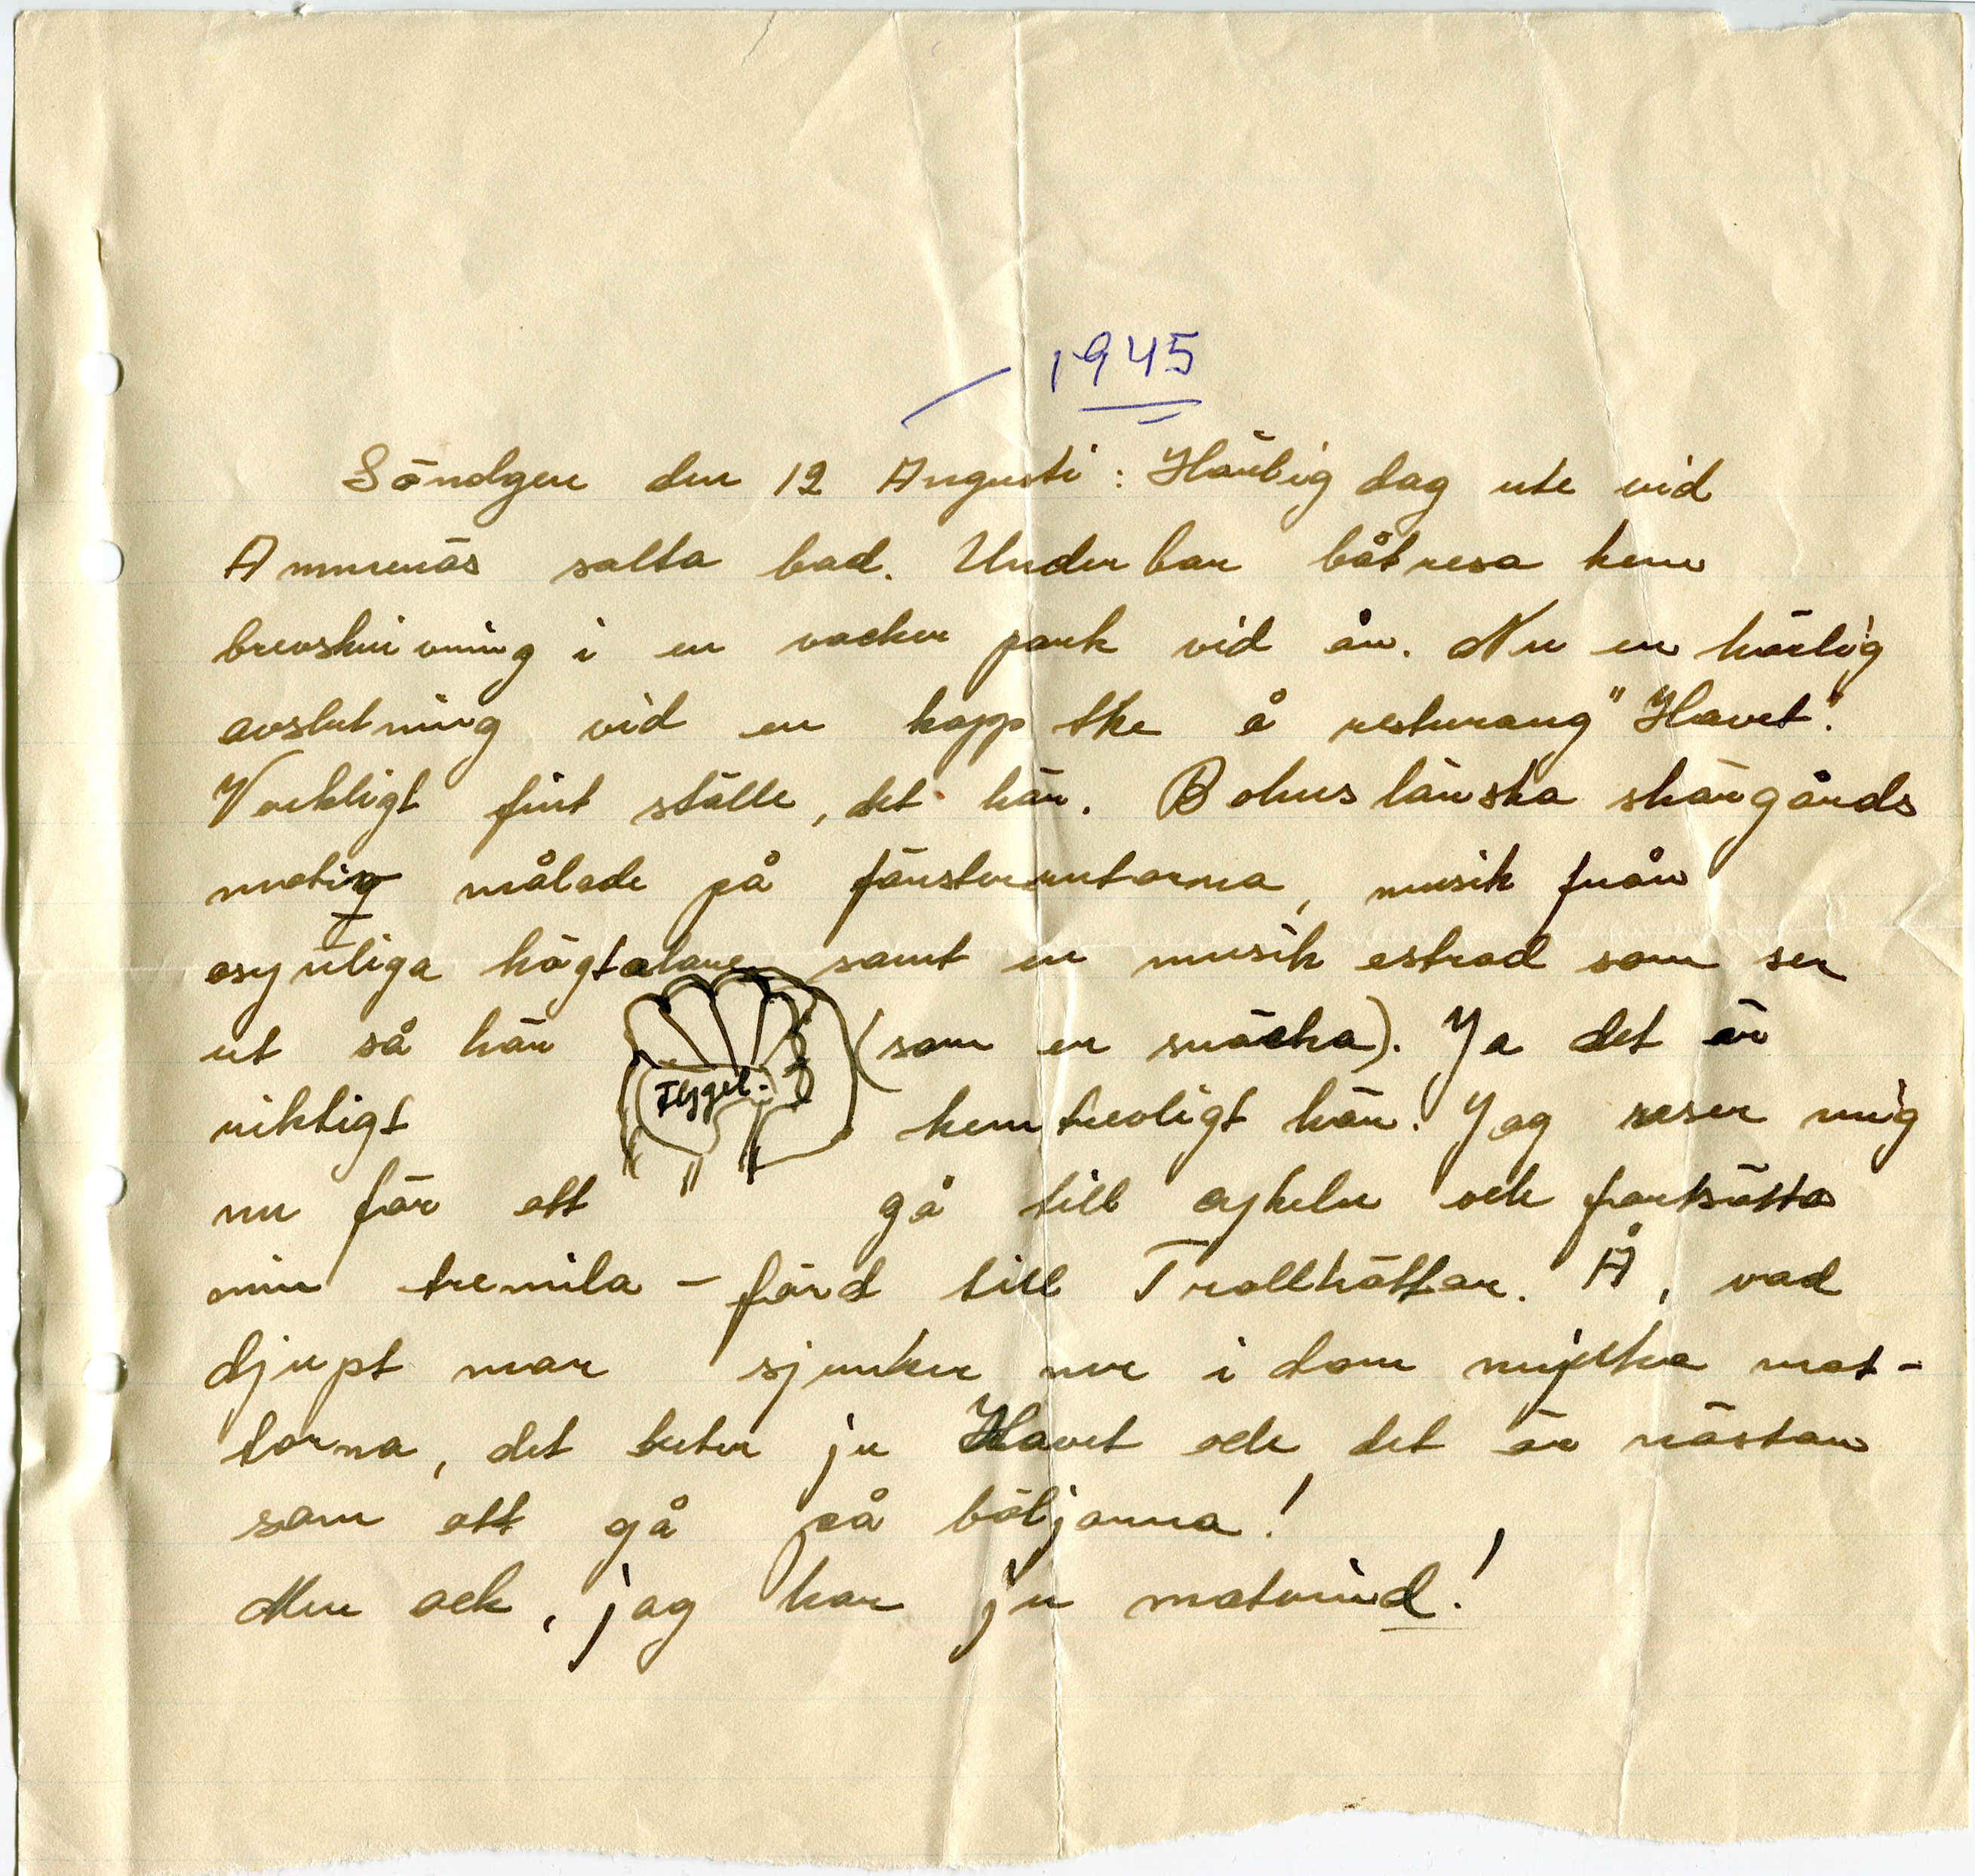 1945
Söndgen den 12 Augusti: Härlig dag ute vid
Ammenäs salta bad. Underbar båtresa hem
brevskrivning i en vacker park vid ån. Nu en härlig
avslutning vid en kopp the å resturang "Havet".
Verkligt fint ställe, det här. Bohuslänska skärgårds
motiv målade på fönsterrutorna, musik från
osynliga högtalare samt en musik estrad som ser
ut så här (som en snäcka). Ja det är
Flygel.
riktigt hemtrevligt här! Jag reser mig
nu för att gå till cykeln och fortsätta
min tremila - färd till Trollhättan. Å, vad
djupt man sjunker ner i dom mjuka mat-
torna, det heter ju Havet och det är nästan
som att gå på böljorna!
Men ack, jag har ju motvind!